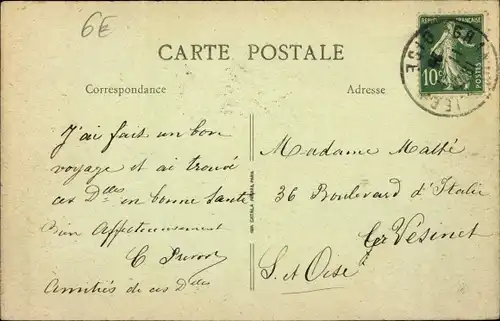 6E
CARTE POSTALE
Correspondance
Adresse
REPUBLIQUE FRANÇAISE
10c
POSTES
J'ai fait un bon
voyage et ai trouvé
ces Dlles en bonne Santé
Bien Affectueusement
C
Amitiés de ces Dlles
Madame Mathé
36 Boulevard d'Italie
Le Vésinet
S. et Oise